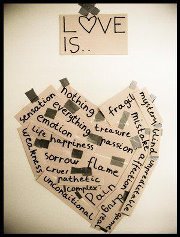 LOVE
IS..
sensation
nothing
everything
emotion
treasure
fragile
mystery
blind
mistake
life
happiness
passion
affection
weakness
sorrow
flame
cruel
pathetic
complex
unconditional
pain
drug